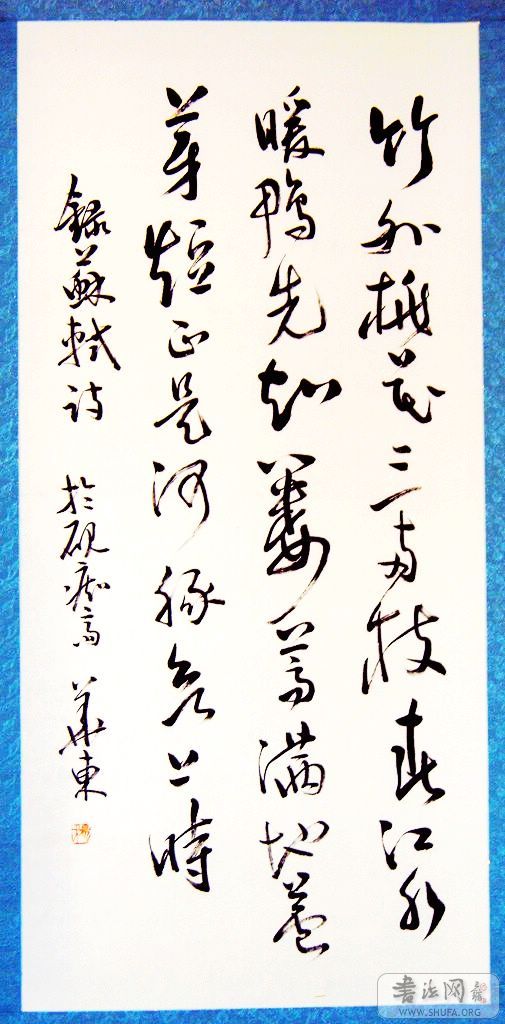 竹外桃花三两枝春江水
暖鸭先知蒌蒿满地芦
芽短正是河豚欲上時
録蘇軾诗 於砚痴斋 華東
书法网
WWW.SHUFA.ORG